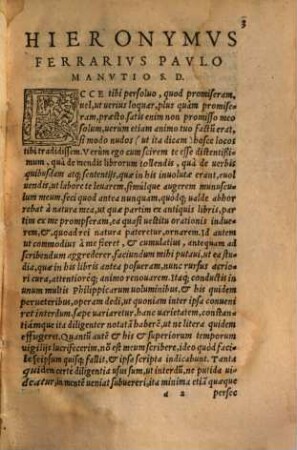 3
HIERONYMVS
FERRARIVS PAVLO
MANVTIO S. D.
ECCE tibi persoluo, quod promiseram,
uel, ut uerius loquar, plus quàm promise-
ram, præsto. satis enim non promisso meo
solum, uerum etiam animo tuo factũ erat,
si modo nudos (ut ita dicam) hosce locos
tibi tradidissem. Verùm ego cum scirem te esse distentissi-
mum, quà de mendis librorum tollendis, quà de uerbis
quibusdam atq; sententijs, quæ in his inuolutæ erant, euol
uendis, ut labore te leuarem, simulque augerem munuscu-
lum meum, feci quod antea nunquam, quodq; ualde abhor
rebat à natura mea, ut quæ partim ex antiquis libris, par-
tim ex me prompseram, ea quasi uestitu orationis induë-
rem, & quoad rei natura pateretur, ornarem. Id autem
ut commodius à me fieret, & cumulatius, antequam ad
scribendum aggrederer, faciundum mihi putaui, ut ea stu-
dia, quæ in his libris antea posueram, nunc rursus acrio-
ri cura, attentioreq; animo renouarem. Itaq; conductis in
unum multis Philippicarum uoluminibus, & his quidem
perueteribus, operam dedi, ut quoniam inter ipsa conueni
ret interdum, sæpe uariaretur, hanc uarietatem, constan-
tiamque ita diligenter notatã haberẽ, ut ne litera quidem
effugeret. Quantũ autẽ & his & superiorum temporum
uigilijs lucrifecerim, nõ est meum scribere, ideo quòd facil
le seipsum quisq; fallit, & ipsa scripta indicabunt. Tanta
quidem certè diligentia usus sum, ut interdũ, ne putida ui-
deatur, in mentẽ ueniat subuereri, ita minima etiã quæque
a 2 persec